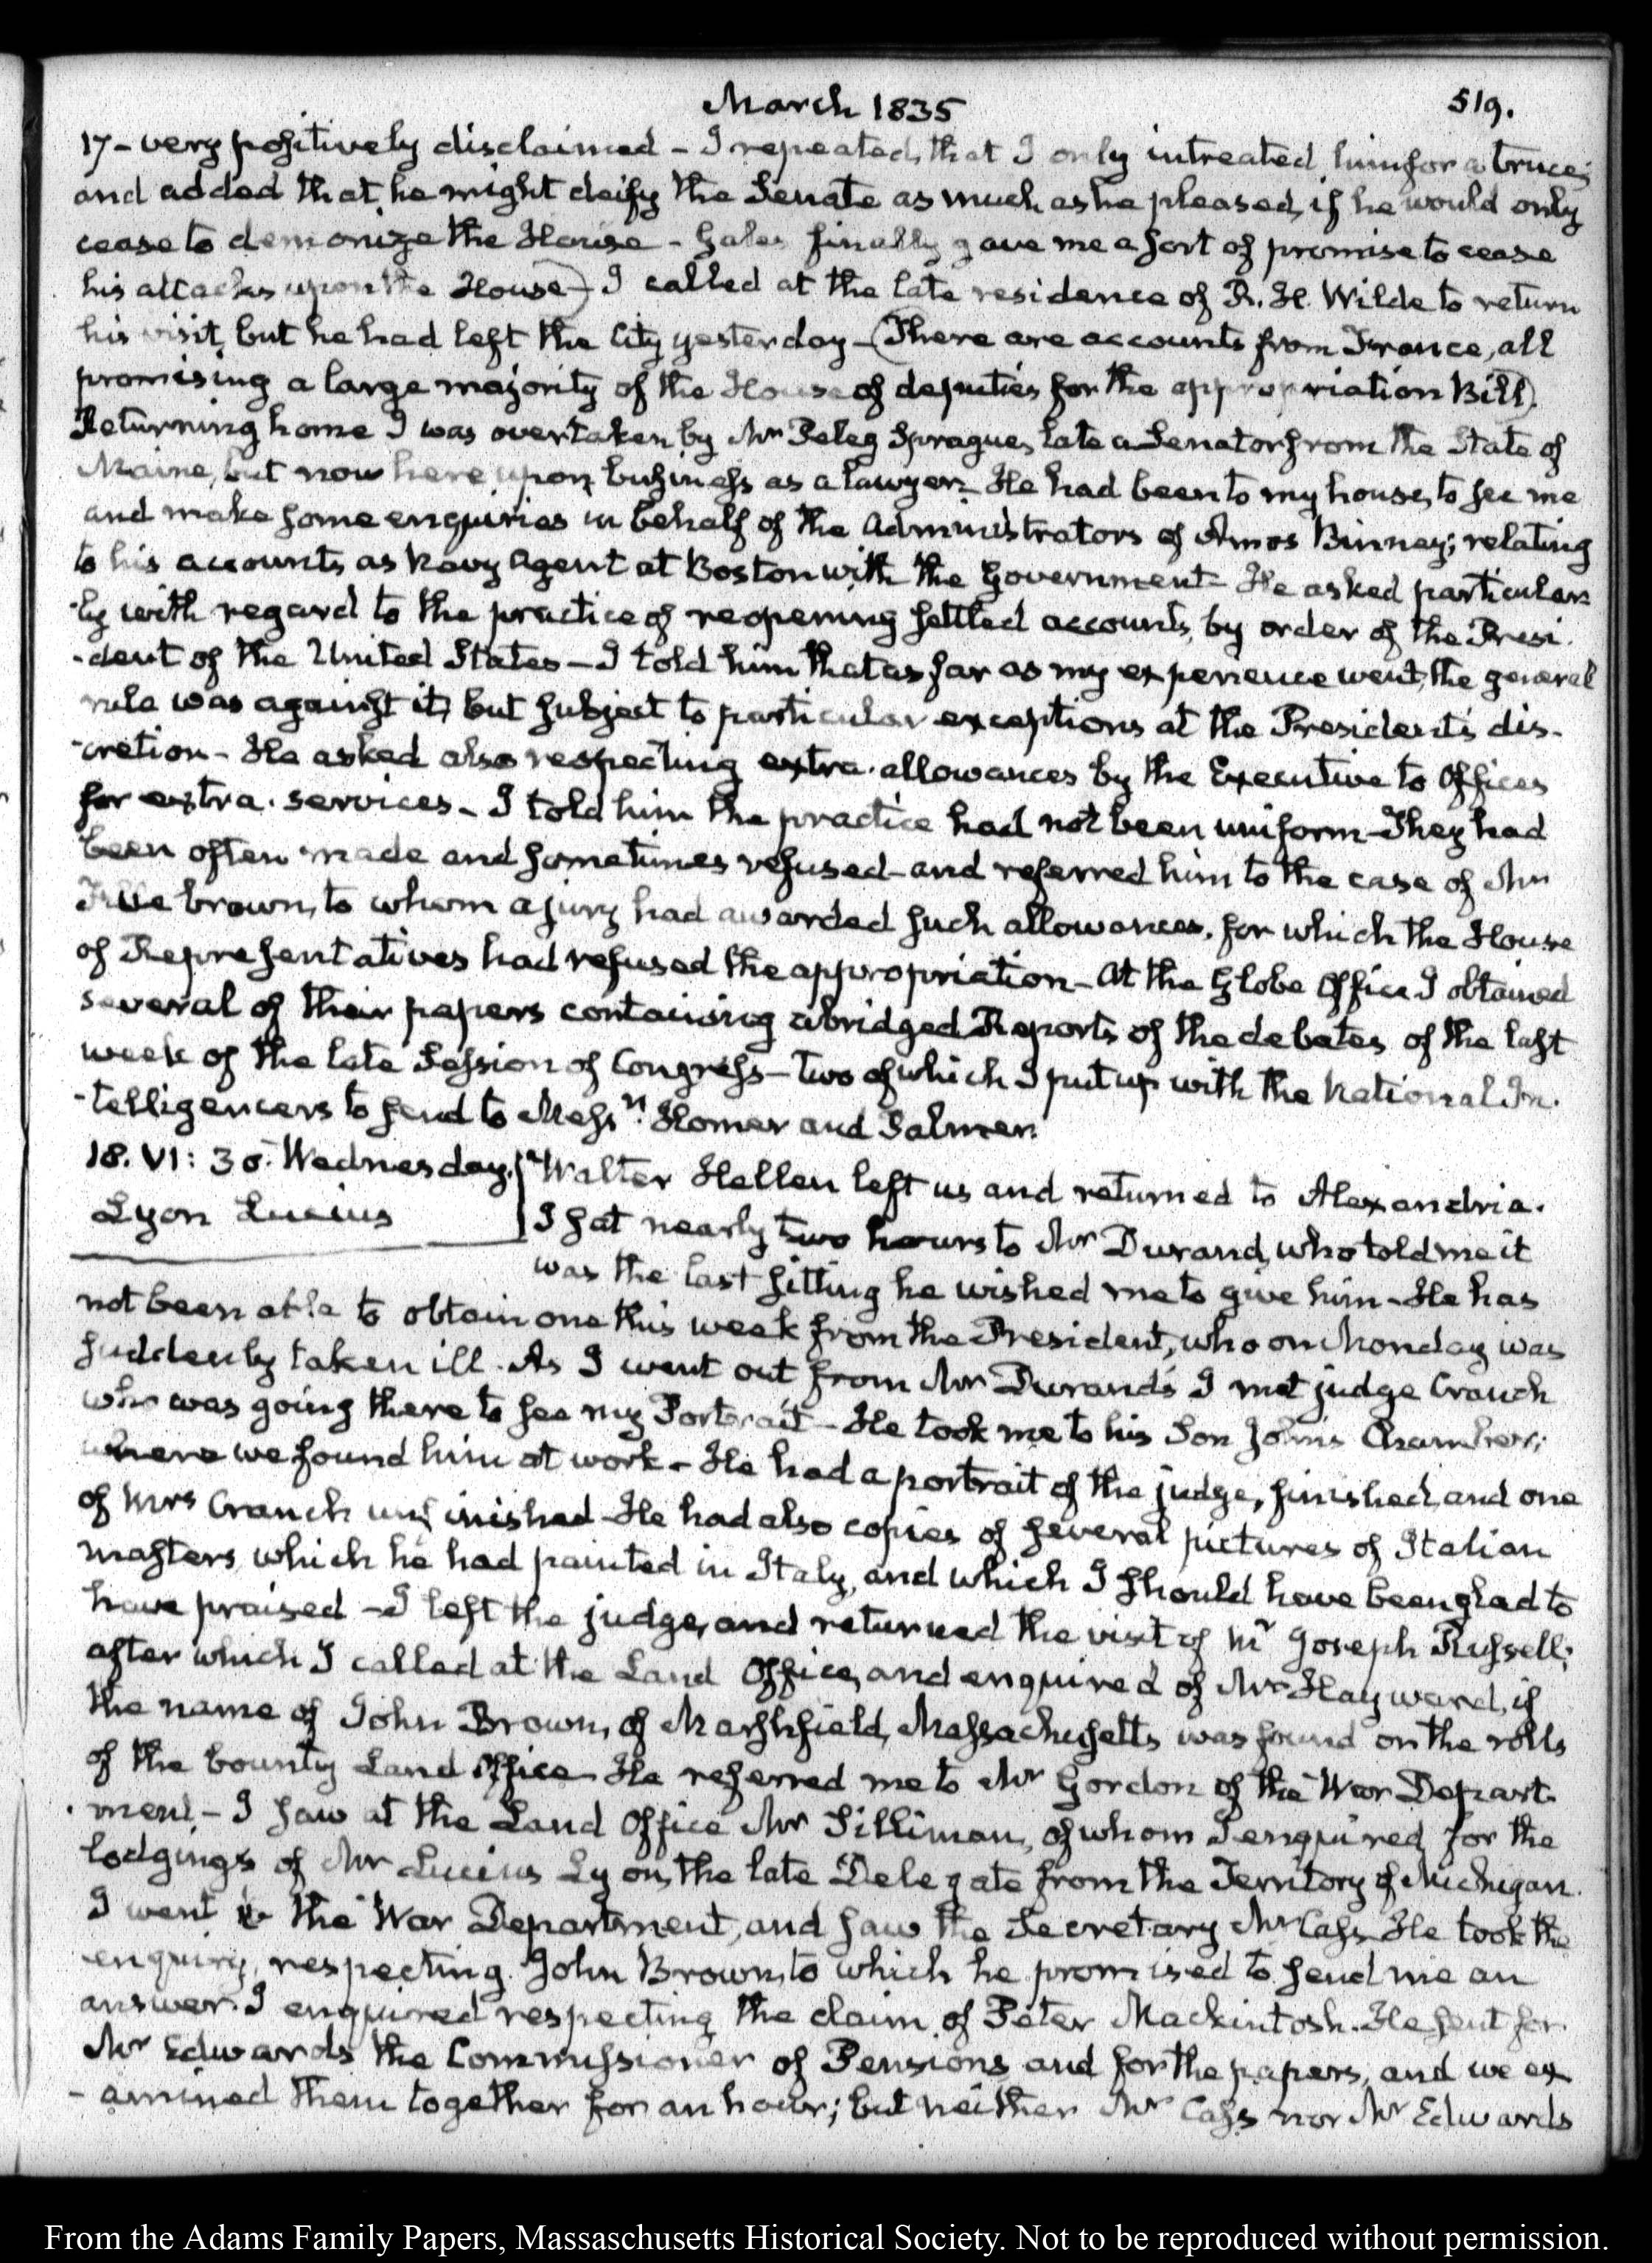 March 1835
519.
17 – very positively disclaimed – I repeated, that I only intreated him for a truce;
and added that he might deify the Senate as much as he pleased, if he would only
cease to demonize the House – Gales finally gave me a sort of promise to cease
his attacks upon the House) – I called at the late residence of R. H. Wilde to return
his visit, but he had left the City yesterday – (There are accounts from France, all
promising a large majority of the House of deputies for the appropriation Bill).
Returning home I was overtaken by Mr Peleg Sprague, late a Senator from the State of
Maine, but now here upon business as a lawyer – He had been to my house, to see me
and make some enquiries in behalf of the Administrators of Amos Binney; relating
to his accounts, as Navy Agent at Boston with the Government – He asked particular-
-ly with regard to the practice of reopening settled accounts, by order of the Presi-
-dent of the United States – I told him that as far as my experience went, the general
rule was against it, but subject to particular exceptions at the President's dis-
-cretion – He asked also respecting extra-allowances by the Executive to Officers
for extra-services – I told him the practice had not been uniform – They had
been often made and sometimes refused – and referred him to the case of Mr
brown, to whom a jury had awarded such allowances, for which the House
of Representatives had refused the appropriation – At the Globe Office I obtained
several of their papers containing abridged Reports of the debates of the last
week of the late Session of Congress – two of which I put up with the National In-
-telligencers to send to Messrs Homer and Palmer.
18. VI: 30. Wednesday.
Walter Hellen left us and returned to Alexandria.
Lyon Lucius
I sat nearly two hours to Mr Durand, who told me it
was the last sitting he wished me to give him – He has
not been able to obtain one this week from the President, who on Monday was
suddenly taken ill. As I went out from Mr Durand's I met judge Cranch
who was going there to see my Portrait – He took me to his Son John's Chamber;
where we found him at work – He had a portrait of the judge, finished, and one
of Mrs Cranch unfinished – He had also copies of several pictures of Italian
masters, which he had painted in Italy, and which I should have been glad to
have praised – I left the judge, and returned the visit of Mr Joseph Russell;
after which I called at the Land Office, and enquired of Mr Hayward, if
the name of John Brown, of Marshfield, Massachusetts, was found on the rolls
of the bounty Land Office – He referred me to Mr Gordon of the War Depart-
-ment – I saw at the Land Office Mr Silliman, of whom I enquired for the
lodgings of Mr Lucius Lyon, the late Delegate from the Territory of Michigan.
I went to the War Department, and saw the Secretary Mr Cass – He took the
enquiry, respecting John Brown, to which he promised to send me an
answer. I enquired respecting the claim of Peter Mackintosh. He sent for
Mr Edwards the Commissioner of Pensions and for the papers, and we ex
-amined them together for an hour; but neither Mr Cass nor Mr Edwards
From the Adams Family Papers, Massaschusetts Historical Society. Not to be reproduced without permission.